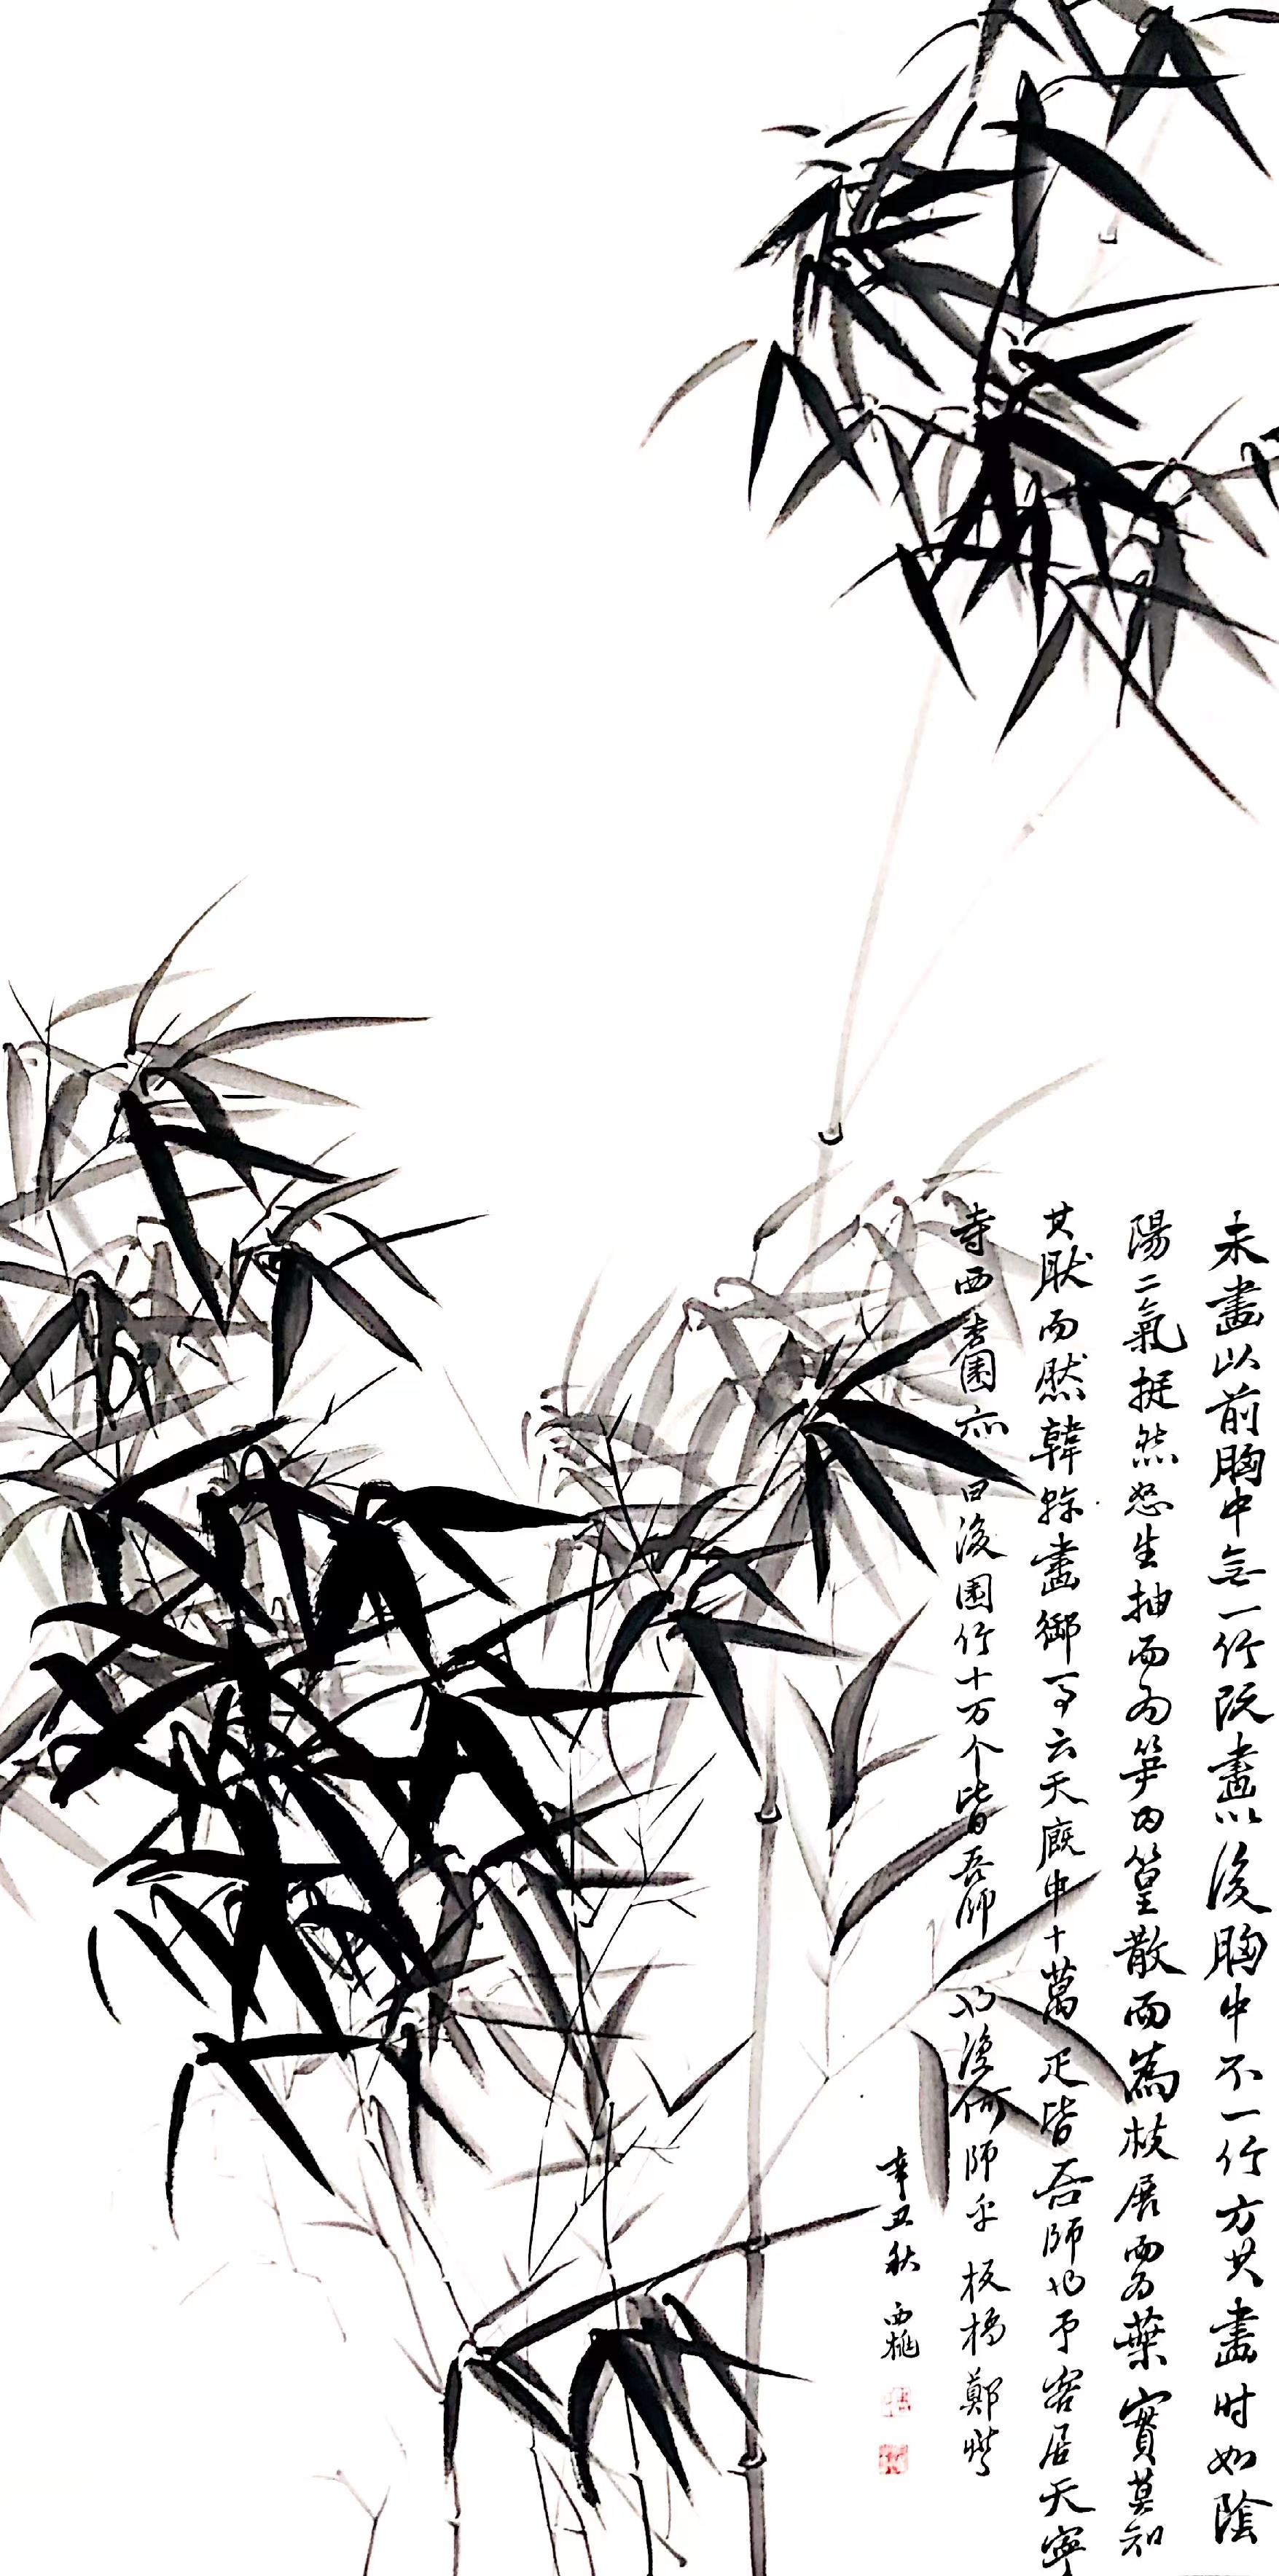 未畫以前胸中無一竹既畫以後胸中不一竹方其畫时如陰
陽二氣挺然怒生抽而为笋为篁散而為枝展而为葉實莫知
其然而然韓幹畫御马云天廐中十萬疋皆吾師也予客居天寧
寺西杏園亦曰後園竹十万个皆吾師也復何師乎板橋鄭燮
辛丑秋 西桃